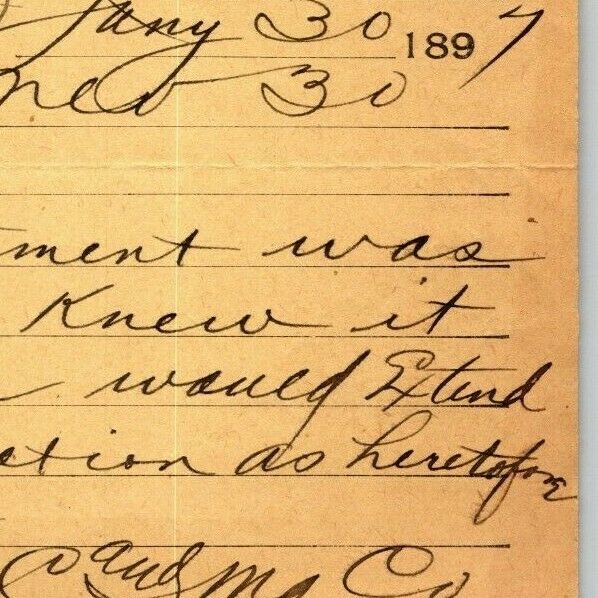 Jany 30 1897
30
tment was
Knew it
would Extend
ction as heretofore
and Co